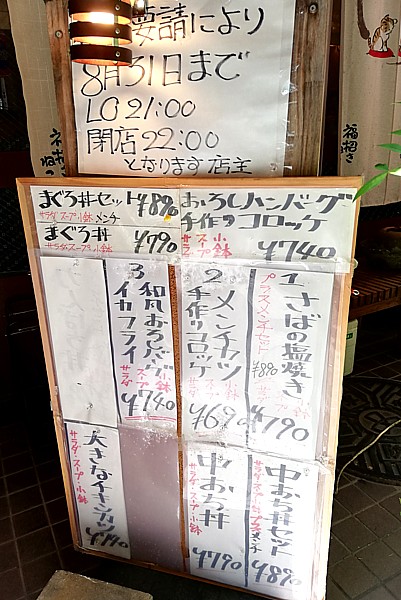 要請により
8月31日まで
LO 21:00
閉店22:00
となります 店主
福招き
まぐろ丼セット ¥890
サラダ スープ 小鉢 メンチ
まぐろ丼 ¥790
サラダ スープ 小鉢
おろしハンバーグ
手作りコロッケ
スープ 小鉢
¥740
1 さばの塩焼き
プラスメンチセット
¥890
¥790
2 メンチカツ
手作りコロッケ
¥69
3 和風おろしハンバーグ
イカフライ
サラダ スープ 小鉢
¥740
中おち丼セット
サラダ・スープ・小鉢
メンチ
¥890
中おち丼
サラダ・スープ・小鉢
¥790
大きなイキシカツ
サラダ・スープ・小鉢